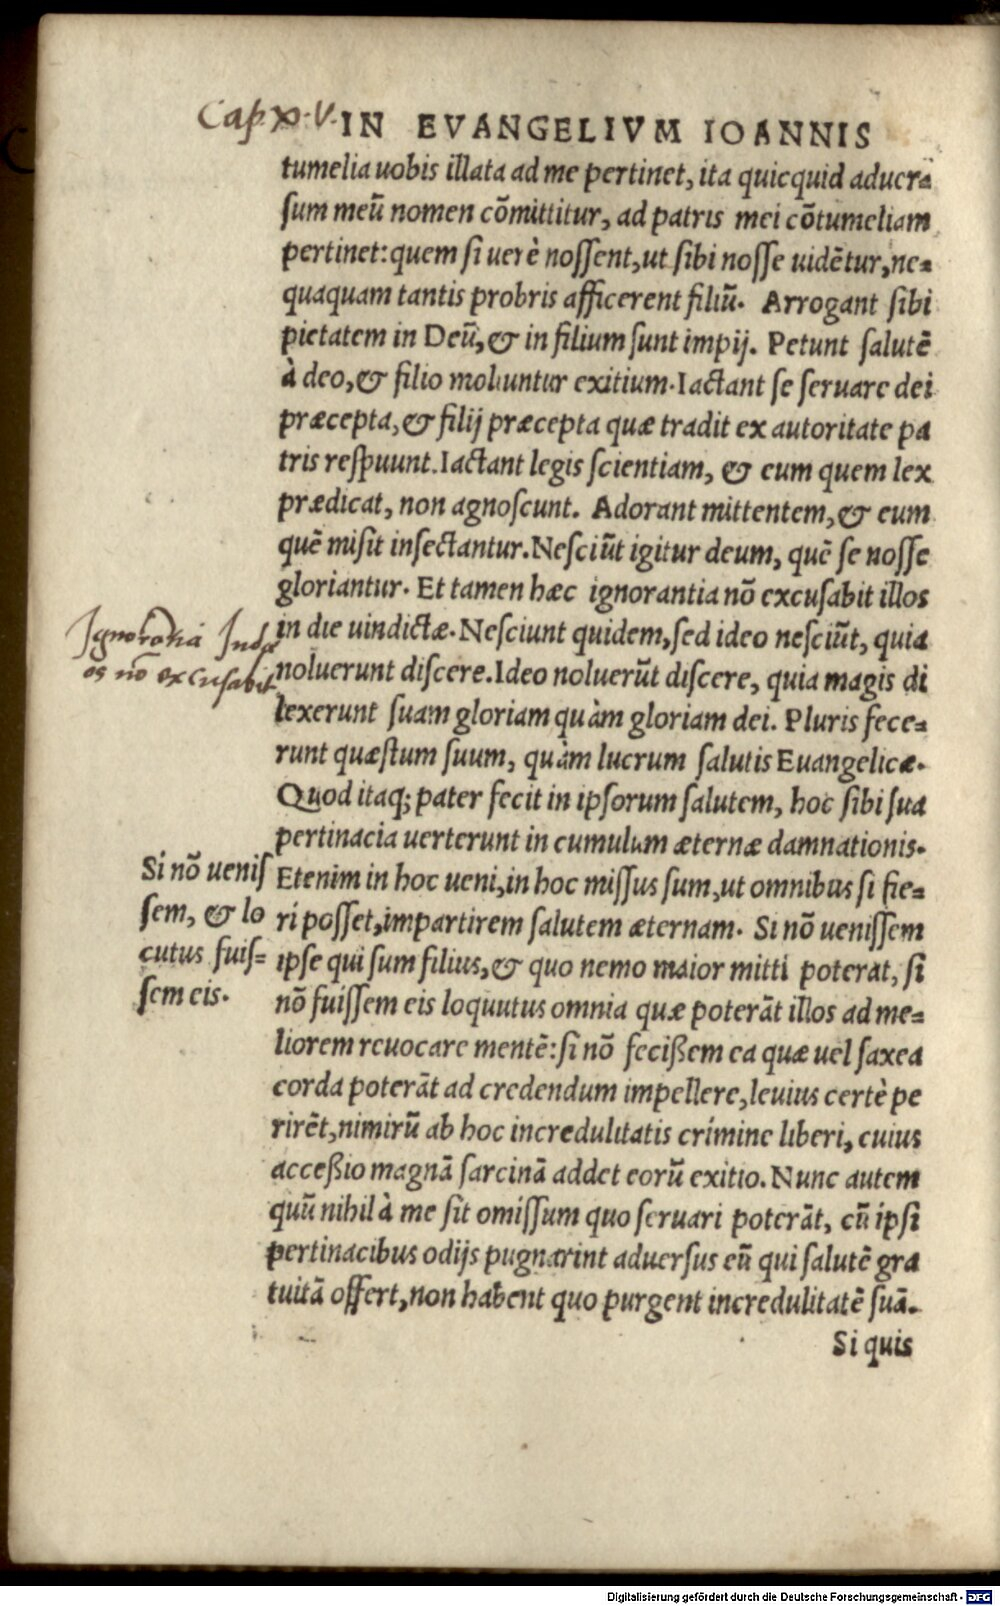 Cap. XV. IN EVANGELIVM IOANNIS
tumelia uobis illata ad me pertinet, ita quicquid aduer-
sum meū nomen cōmittitur, ad patris mei cōtumeliam
pertinet: quem si uerè nossent, ut sibi nosse uidētur, ne-
quaquam tantis probris afficerent filiū. Arrogant sibi
pietatem in Deū, & in filium sunt impij. Petunt salutē
à deo, & filio moliuntur exitium. Iactant se seruare dei
præcepta, & filij præcepta quæ tradit ex autoritate pa
tris respuunt. Iactant legis scientiam, & eum quem lex
prædicat, non agnoscunt. Adorant mittentem, & eum
quē misit insectantur. Nesciūt igitur deum, quē se nosse
gloriantur. Et tamen hæc ignorantia nō excusabit illos
Ignorātia Iudæ
os nō excusabit
in die uindictæ. Nesciunt quidem, sed ideo nesciūt, quia
noluerunt discere. Ideo noluerūt discere, quia magis di
lexerunt suam gloriam quàm gloriam dei. Pluris fece-
runt quæstum suum, quàm lucrum salutis Euangelicæ.
Quod itaq; pater fecit in ipsorum salutem, hoc sibi sua
pertinacia uerterunt in cumulum æternæ damnationis.
Si nō uenis
sem, & lo
cutus fuis-
sem eis.
Etenim in hoc ueni, in hoc missus sum, ut omnibus si fie-
ri posset, impartirem salutem æternam. Si nō uenissem
ipse qui sum filius, & quo nemo maior mitti poterat, si
nō fuissem eis loquutus omnia quæ poterāt illos ad me-
liorem reuocare mentē: si nō fecißem ea quæ uel saxea
corda poterāt ad credendum impellere, leuius certè pe
rirēt, nimirū ab hoc incredulitatis crímine liberi, cuius
acceßio magnā sarcinā addet eorū exitio. Nunc autem
quū nihil à me sit omissum quo seruari poterāt, cū ipsi
pertinacibus odijs pugnarint aduersus eū qui salutē gra
tuitā offert, non habent quo purgent incredulitatē suā.
Si quis
Digitalisierung gefördert durch die Deutsche Forschungsgemeinschaft - DFG